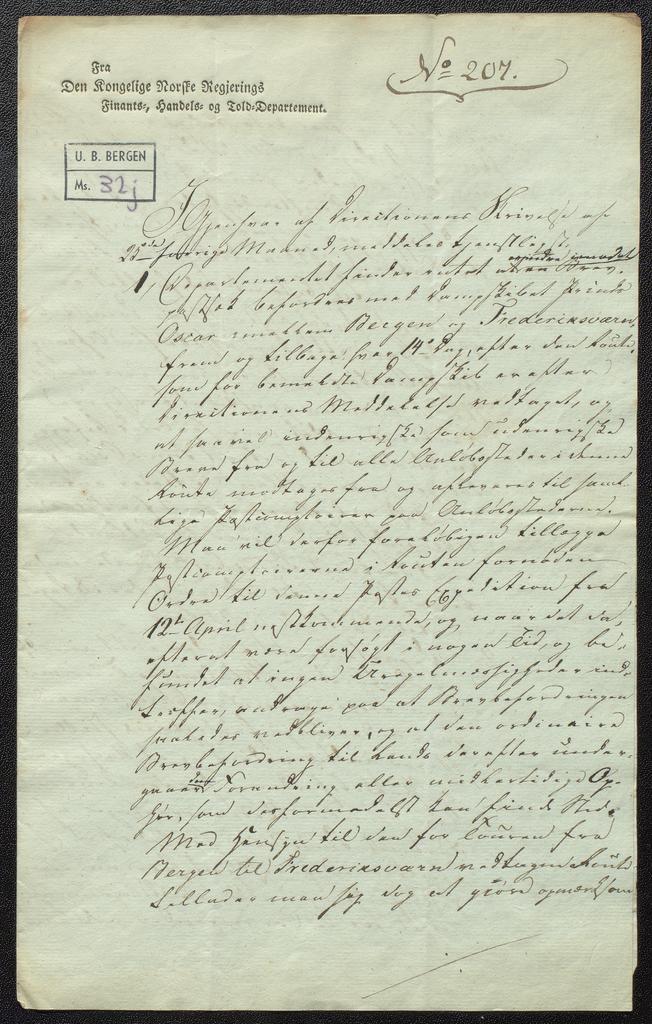 Fra
Den Kongelige Norske Regjerings
Finants-, Handels- og Told-Departement.
No 207.
U. B. BERGEN
Ms. 32j
I Gjensvar af Directionens Skrivelse af
25de forrige Maaned, meddeles tjenstligst,
1, Departementet finder intet at erindre imod at en Brev-
postsæk befordres med Dampskibet Prinds
Oscar imellem Bergen og Frederiksværn,
frem og tilbage hver 14de Dag, efter den Route
som for bemeldte Dampskib er efter
Directionens Meddelelse vedtaget, og
at saavel indenrigske som udenrigske
Breve fra og til alle Anløbssteder i denne
Route modtages fra og afleveres til samt-
lige Postcomptoirer paa Anløbsstederne.
Man vil derfor foreløbigen tillægge
Postcomptoirerne i Routen fornøden
Ordre til denne Postes Expedition fra
12te April næstkommende, og naar det da,
efterat være forsøgt i nogen Tid, og be-
fundet at ingen Uregelmæssigheder ind-
træffer, andrage paa at Brevbefordringen
saaledes vedbliver, og at den ordinaire
Brevbefordring til Lands derefter under-
gaaer den Forandring eller midlertidige Op-
hør, som desformedelst kan finde Sted.
Med Hensyn til den for Touren fra
Bergen til Frederiksværn vedtagne Route
tillader man sig dog at giøre opmærksom